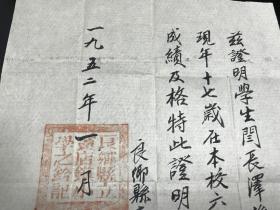 茲證明學生閆長澤
現年十七歲在本校六
成績及格特此證明
良鄉縣
一九五二年一月